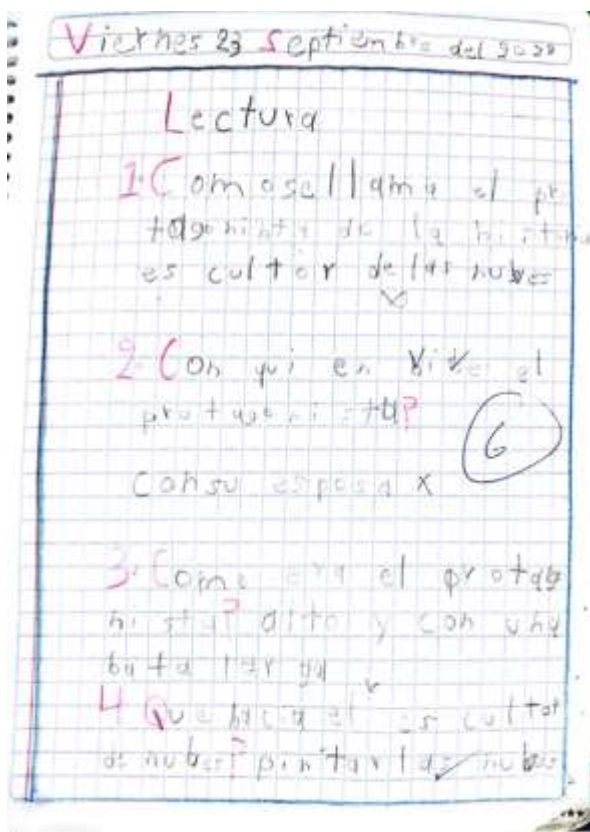 Viernes 23 Septiembre del 2022
Lectura
1. Como se llama el pro
tagonista de la historia
es cultor de las nubes
2. Con qui en vive el
protagonista?
6
Con su esposa x
3. Como era el protago
nista? alto y con una
bata larga
4 Que hacia el es cultor
de nubes? pintar las nubes